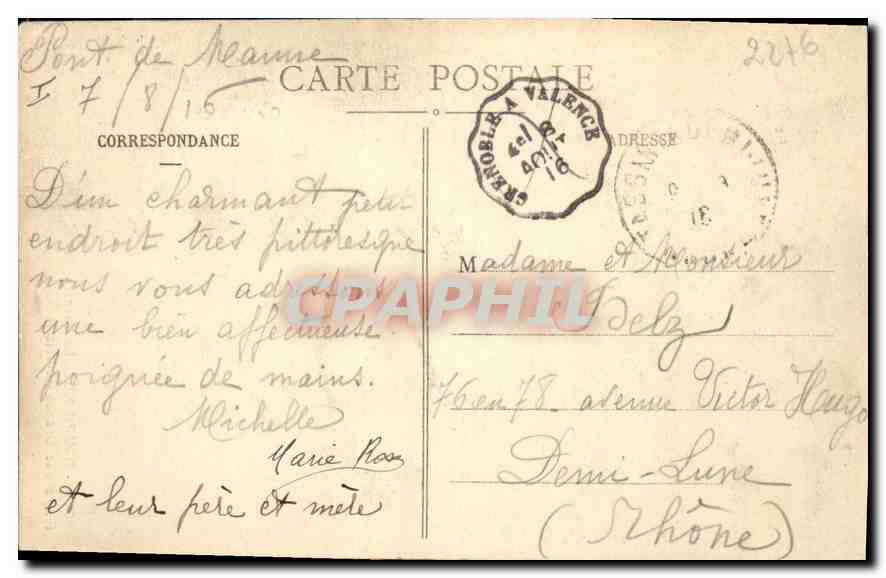 Pont de Manne
2276
I 7/8/16
CARTE POSTALE
CORRESPONDANCE
ADRESSE
GRENOBLE A VALENCE
4e 8
AOUT
16
16
D'un charmant petit
endroit très pittoresque
nous vous adressons
une bien affectueuse
poignée de mains.
Michelle
Marie Rose
et leur père et mère
Madame et Monsieur
Belz
76 ou 78. avenue Victor Hugo
Demi-Lune
(Rhône)
CPAPHIL